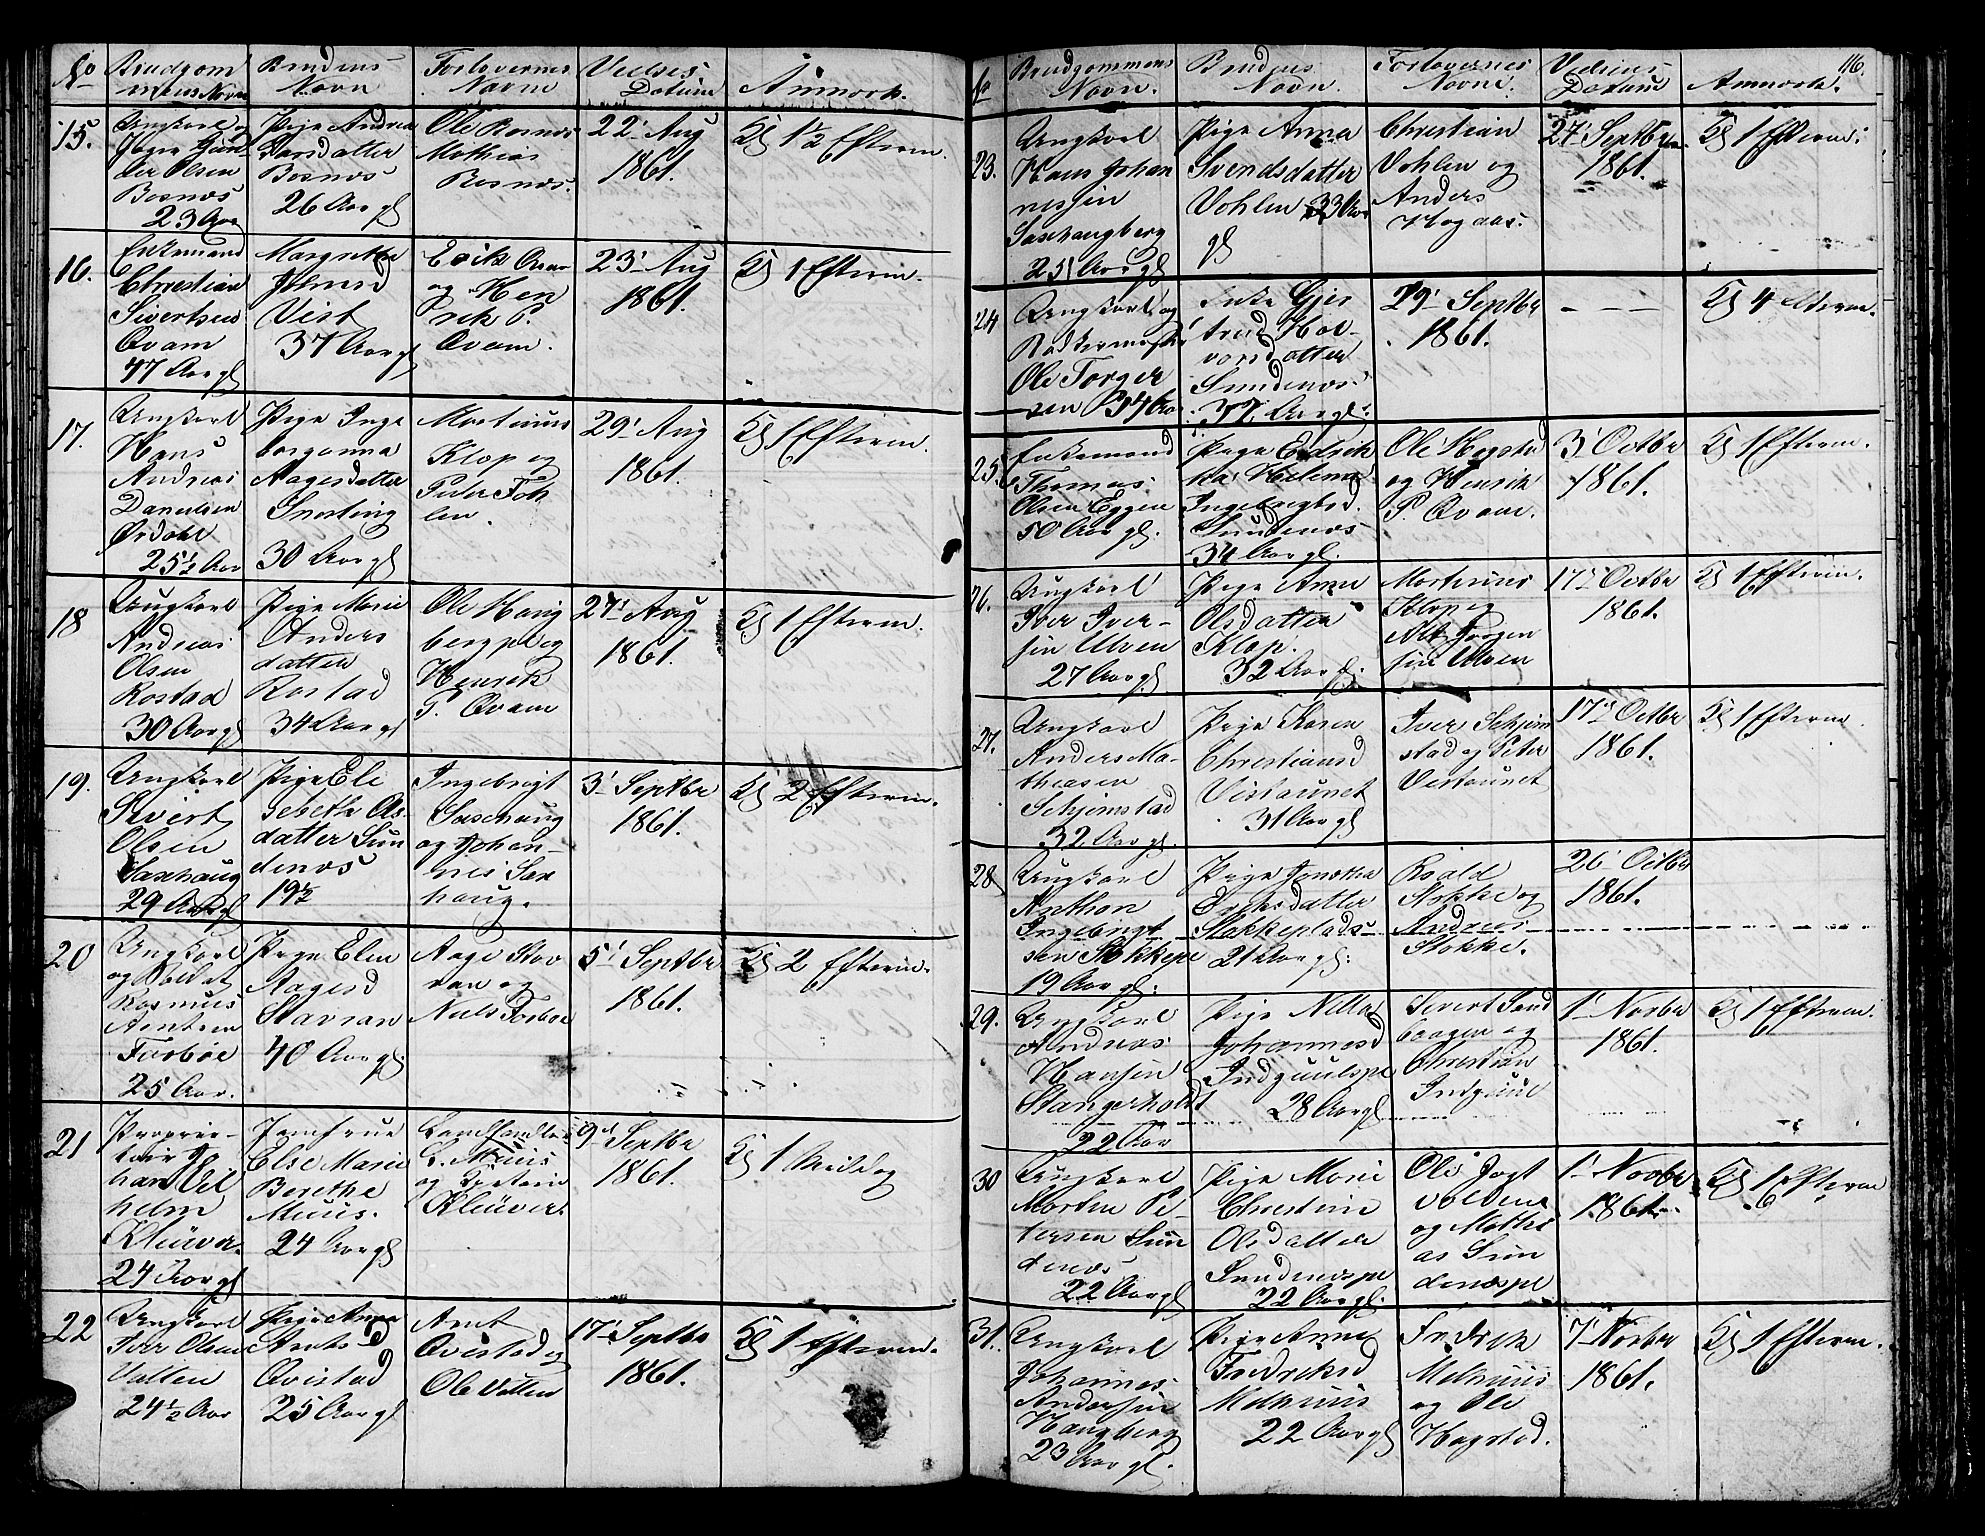 No
Brudgom
mens Navn
Brudens
Navn
Forlovernes
Navne
Vielses
Datum
Anmærk.
15.
Ungkarl og
Jæger
der Olsen
Bosnæs
23 Aar
Pige Andrea
Larsdatter
Bosnæs
26 Aar gl
Ole Bosnæs
Mathias
Bosnæs.
22' Aug
1861.
Kl 1½ Efterm.
16.
Enkemand
Christian
Sivertsen
Qvam
47 Aar gl
Margrethe
Johnsd
Vist
37 Aar gl
Erik Qvam
og Hen
rik P.
Qvam.
23' Aug
1861.
Kl 1 Efterm.
17.
Ungkarl
Hans
Andreas
Danielsen
Ørdahl
25½ Aar
Pige Inge
borganna
Aagesdatter
Snerting
30 Aar gl
Martinus
Klop og
Peter Foh
len.
29' Aug
1861.
Kl 1 Efterm.
18
Ungkarl
Andreas
Olsen
Rostad
30 Aar gl
Pige Marie
Anders
datter
Rostad
34 Aar gl
Ole Haug
berg pl og
Henrik
P. Qvam
27' Aug
1861.
Kl 1 Efterm.
19.
Ungkarl
Sivert
Olsen
Saxhaug
29 Aar gl
Pige Ele
sebeth Ols
datter Sun
denæs
19½
Ingebrigt
Saxhaug
og Johan
nes Sax
haug.
3' Septbr
1861.
Kl 2 Efterm.
20
Ungkarl
og Soldat
Rasmus
Arntsen
Forbøe
25 Aar.
Pige Elen
Aagesd
Stavran
40 Aar gl.
Aage Stav
ran og
Niels Forbøe
5' Septbr
1861.
Kl 2 Efterm.
21
Proprie-
tair Jo
han Vil
helm
Klüwer.
24 Aar gl
Jomfrue
Else Marie
Berethe
Muus.
24 Aar gl
Landhandler
Muus
og Kaptein
Klüwer.
9d Septbr
1861.
Kl 1 Middag
22
Ungkarl
Iver Olsen
Valten
24½ Aar
Pige Anna
Arntsd
Qvistad
25 Aar gl
Arnt
Qvistad og
Ole Valten
17' Septbr
1861.
Kl 1 Efterm.
116.
No
Brudgommens
Navn.
Brudens
Navn.
Forlovernes
Navne.
Vielses
Datum
Anmærk.
23.
Ungkarl
Hans Johan
nessen
Saxhaugberg
25 Aar gl
Pige Anna
Svendsdatter
Vohlen 33 Aar
gl
Christian
Vohlen og
Anders
Hogaas.
27' Septbr
1861.
Kl 1 Efterm.
24
Ungkarl og
Ole Torger
sen 34 Aar
Enke Gjer
trud Hal
vorsdatter
Sundenæs
37 Aar gl.
29' Septbr
1861.
- - -
Kl 4 Efterm.
25.
Enkemand
Thomas
Olsen Eggen
50 Aar gl.
Pige Endrik
ka Helena
Ingebrigtsd.
Sundenæs
34 Aar gl.
Ole Hagstad
og Henrik
P. Qvam.
3' Octbr
1861.
Kl 1 Efterm.
26.
Ungkarl
Iver Iver-
sen Ulven
27 Aar gl
Pige Anne
Olsdatter
Klop.
32 Aar gl.
Martinus
Klop og
Jørgen
sen Ulven
17' Octbr
1861.
Kl 1 Efterm.
27.
Ungkarl
Anders Ma-
thiasen
Schjemstad
32 Aar gl.
Pige Karen
Christiansd
Vistaunet
31 Aar gl
Iver Schjem
stad og Peter
Vistaunet
17' Octbr
1861.
Kl 1 Efterm.
28
Ungkarl
Anthon
Ingebrigt
sen Stokkepl
19 Aar gl.
Pige Jonetha
Eriksdatter
Stokkeplads
21 Aar gl.
Roald
Stokke og
Andreas
Stokke.
26' Octbr
1861.
29.
Ungkarl
Andreas
Hansen
Stangerholdt
22 Aar
Pige Nella
Johannesd
Indguulspl
28 Aar gl
Sivert Sand
baagen og
Christian
Indguul
1' Novbr
1861.
Kl 1 Efterm.
30
Ungkarl
Morten Pe-
tersen Sun
denæs
22 Aar gl
Pige Marie
Christine
Olsdatter
Sundenæspl
22 Aar gl.
Ole Jagt
volden
og Mathi
as Sun
denæspl
1' Novbr
1861.
Kl 1 Efterm
31.
Ungkarl
Johannes
Andersen
Haugberg
23 Aar gl.
Pige Anna
Fredriksd
Melhuus
22 Aar gl
Fredrik
Melhuus
og Ole
Hagstad.
7' Novbr
1861.
Kl 1 Efterm.